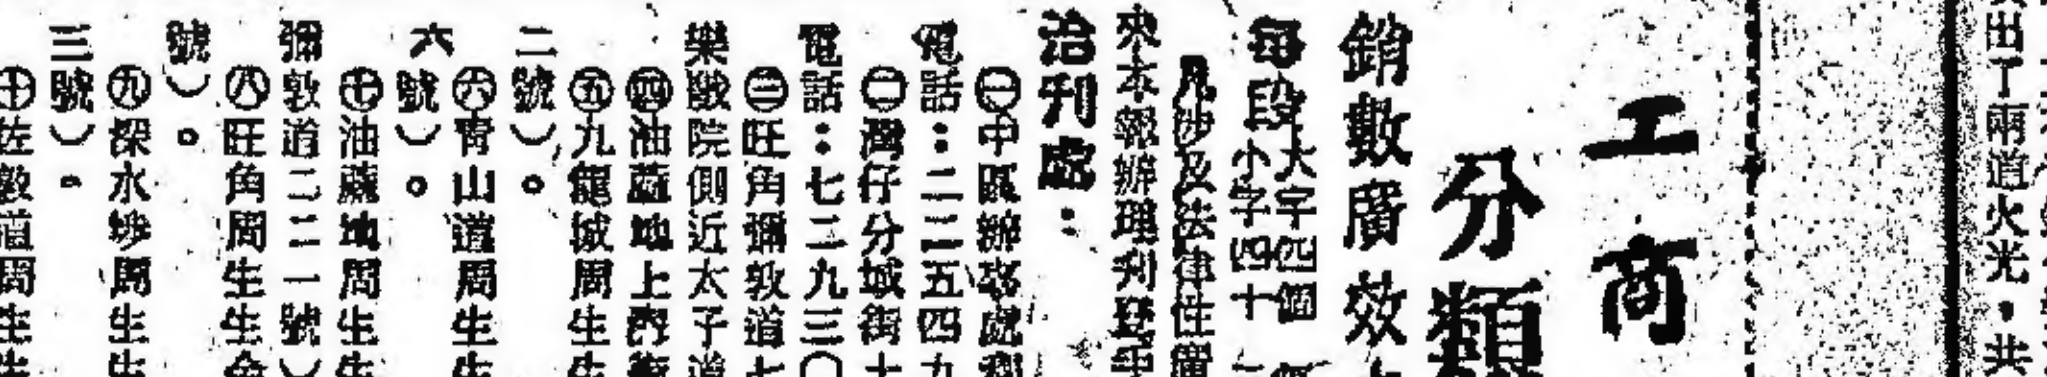 出了兩道火光，共
工商
分類
銷數廣效
每段大字四個
小字四十
凡涉及法律性
來本報辦理刊登
洽刊處：
㊀中區辦事處
電話：二二五四九
㊁灣仔分城街十
電話：七二九三〇
㊂旺角彌敦道七
樂戲院側近太子道
㊃油蔴地上海街
㊄九龍城周生生
二號）。
㊅青山道周生生
六號）。
㊆油蔴地周生生
彌敦道二二一號）
㊇旺角周生生金
號）。
㊈深水埗周生生
三號）。
㊉佐敦道周生生